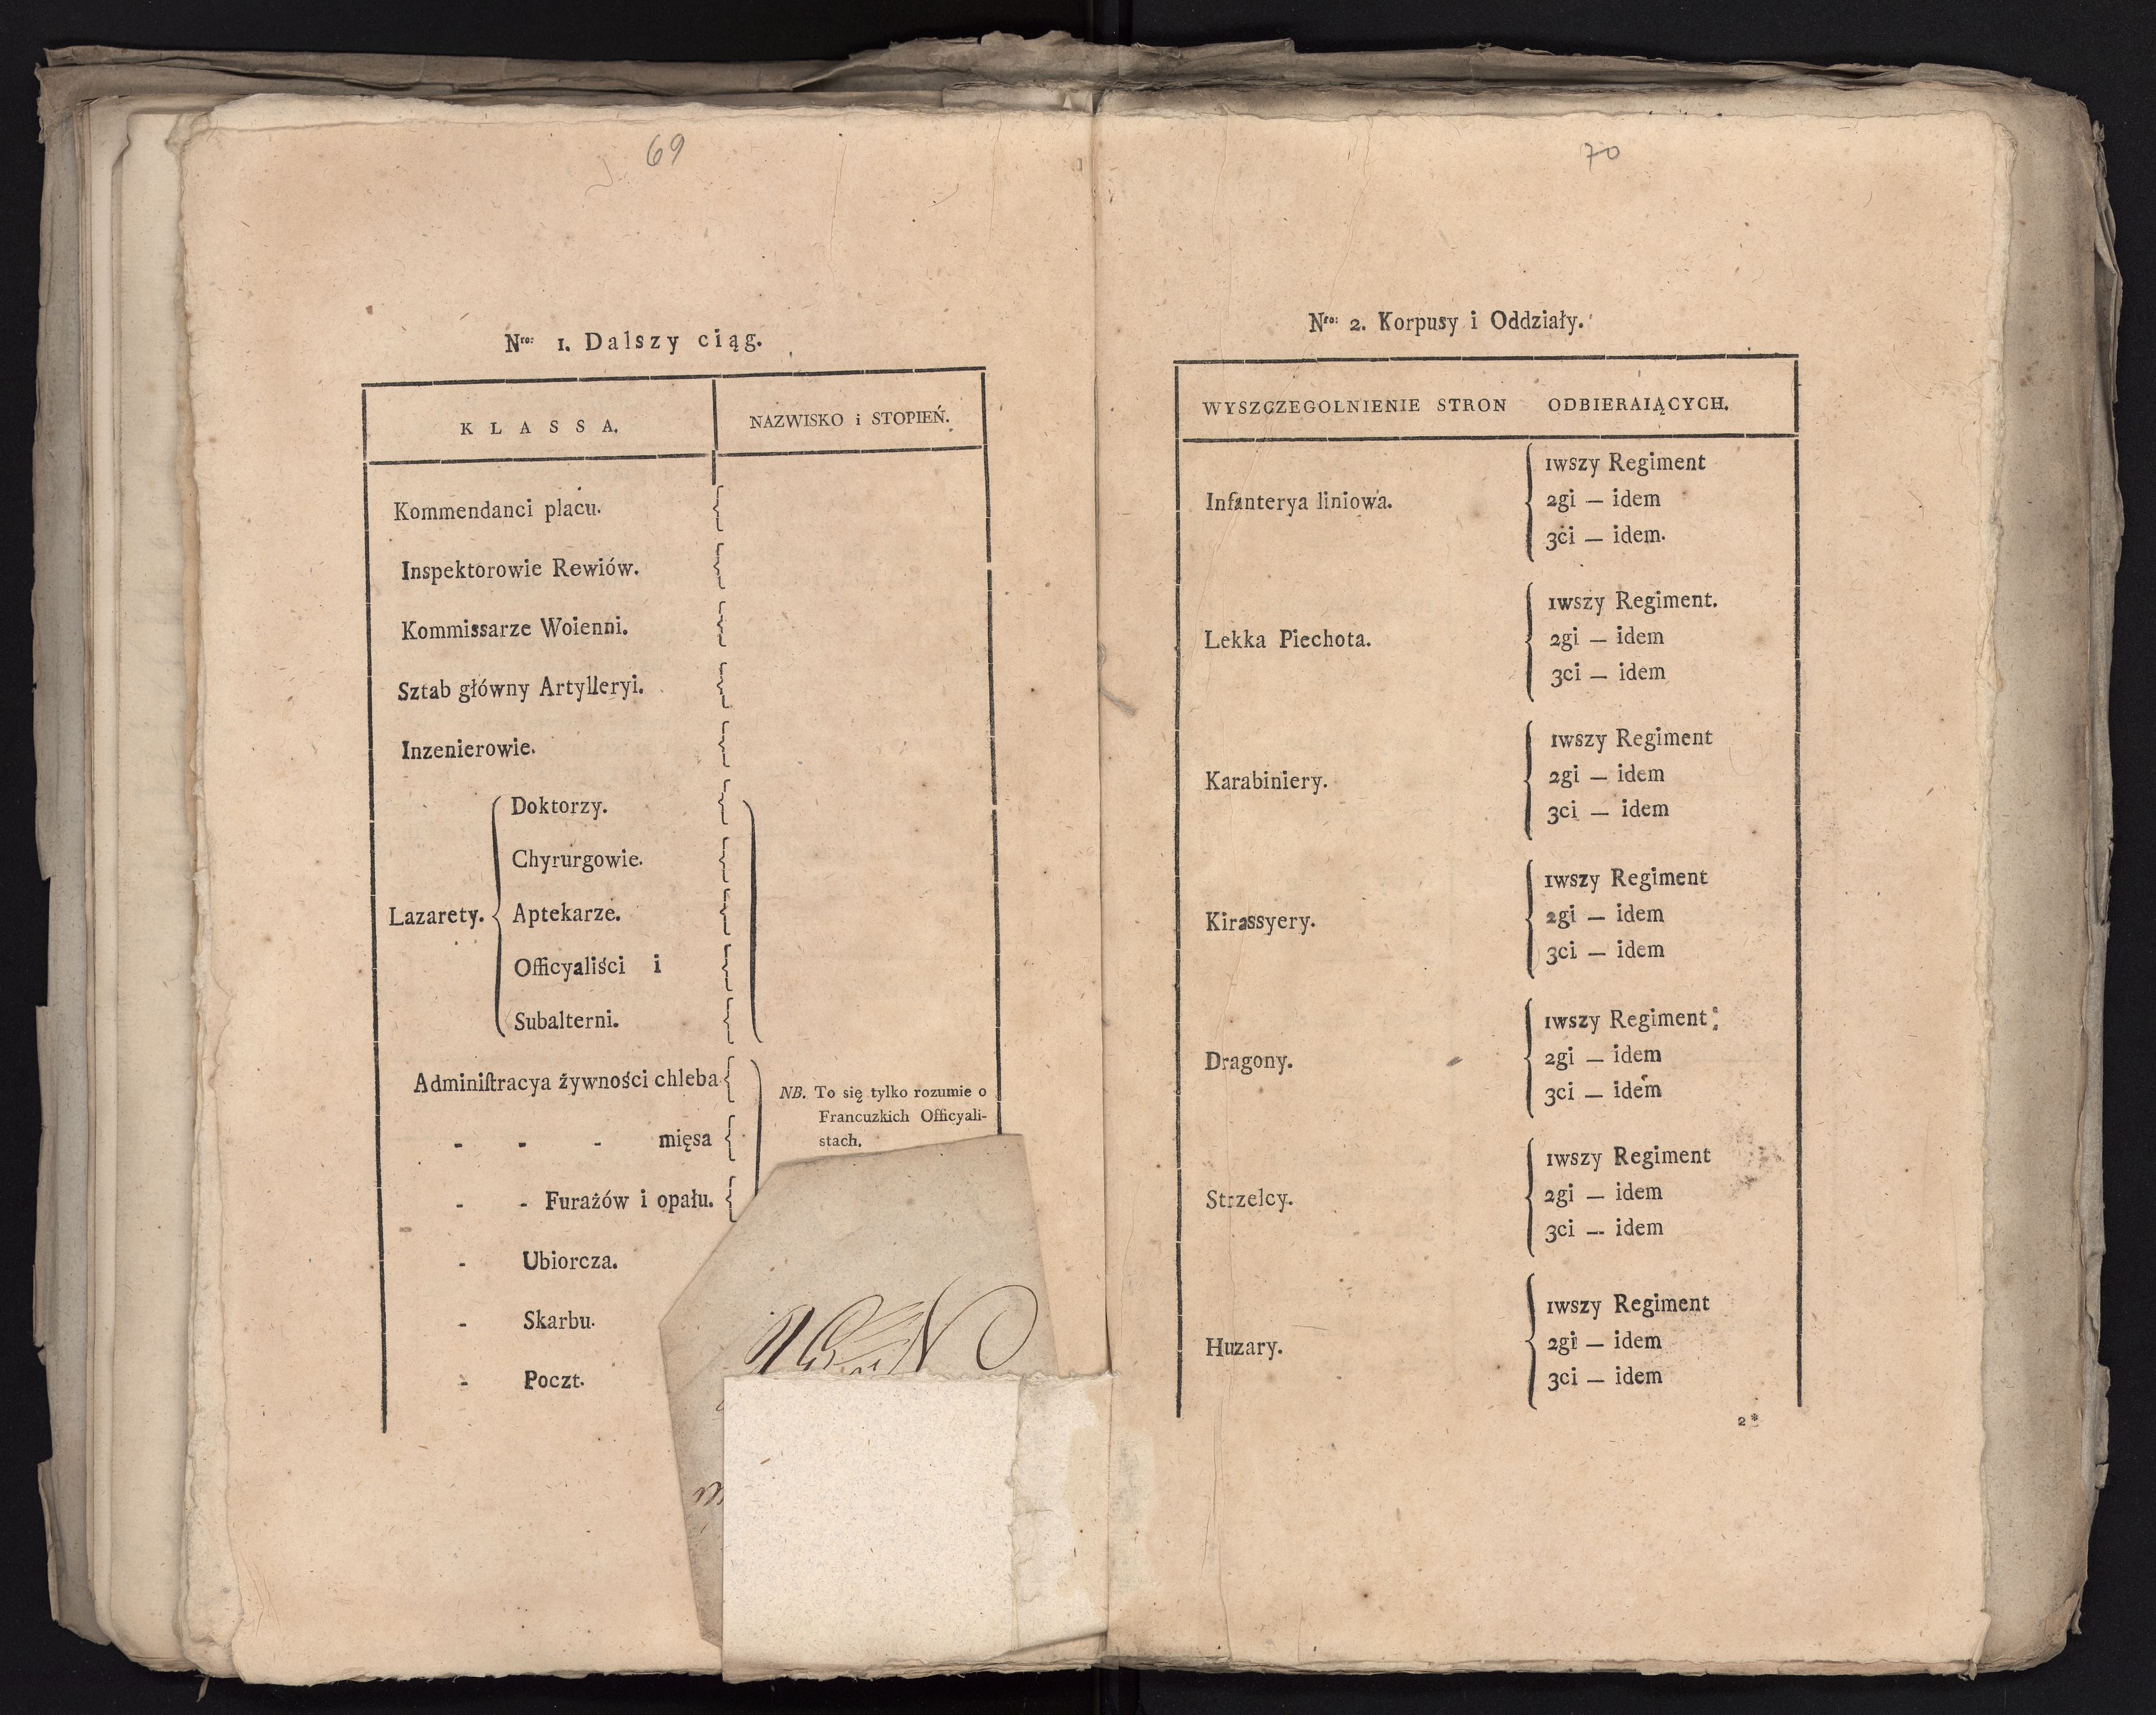 69
Nro: 1. Dalszy ciąg.
KLASSA. NAZWISKO i STOPIEŃ.
Kommendanci placu.
Inspektorowie Rewiów.
Kommissarze Woienni.
Sztab główny Artylleryi.
Inzenierowie.
Doktorzy.
Chyrurgowie.
Lazarety. Aptekarze.
Officyaliści i
Subalterni.
Adminiſtracya żywności chleba
NB. To się tylko rozumie o
Francuzkich Officyali-
stach.
- - - mięsa
- - Furażów i opału.
- Ubiorcza.
- Skarbu.
- Poczt.
70
Nro: 2. Korpusy i Oddziały.
WYSZCZEGOLNIENIE STRON ODBIERAIĄCYCH.
1wszy Regiment
Infanterya liniowa. 2gi — idem
3ci — idem.
1wszy Regiment.
Lekka Piechota. 2gi — idem
3ci — idem
1wszy Regiment
Karabiniery. 2gi — idem
3ci — idem
1wszy Regiment
Kirassyery. 2gi — idem
3ci — idem
1wszy Regiment
Dragony. 2gi — idem
3ci — idem
1wszy Regiment
Strzelcy. 2gi — idem
3ci — idem
1wszy Regiment
Huzary. 2gi — idem
3ci — idem
2*